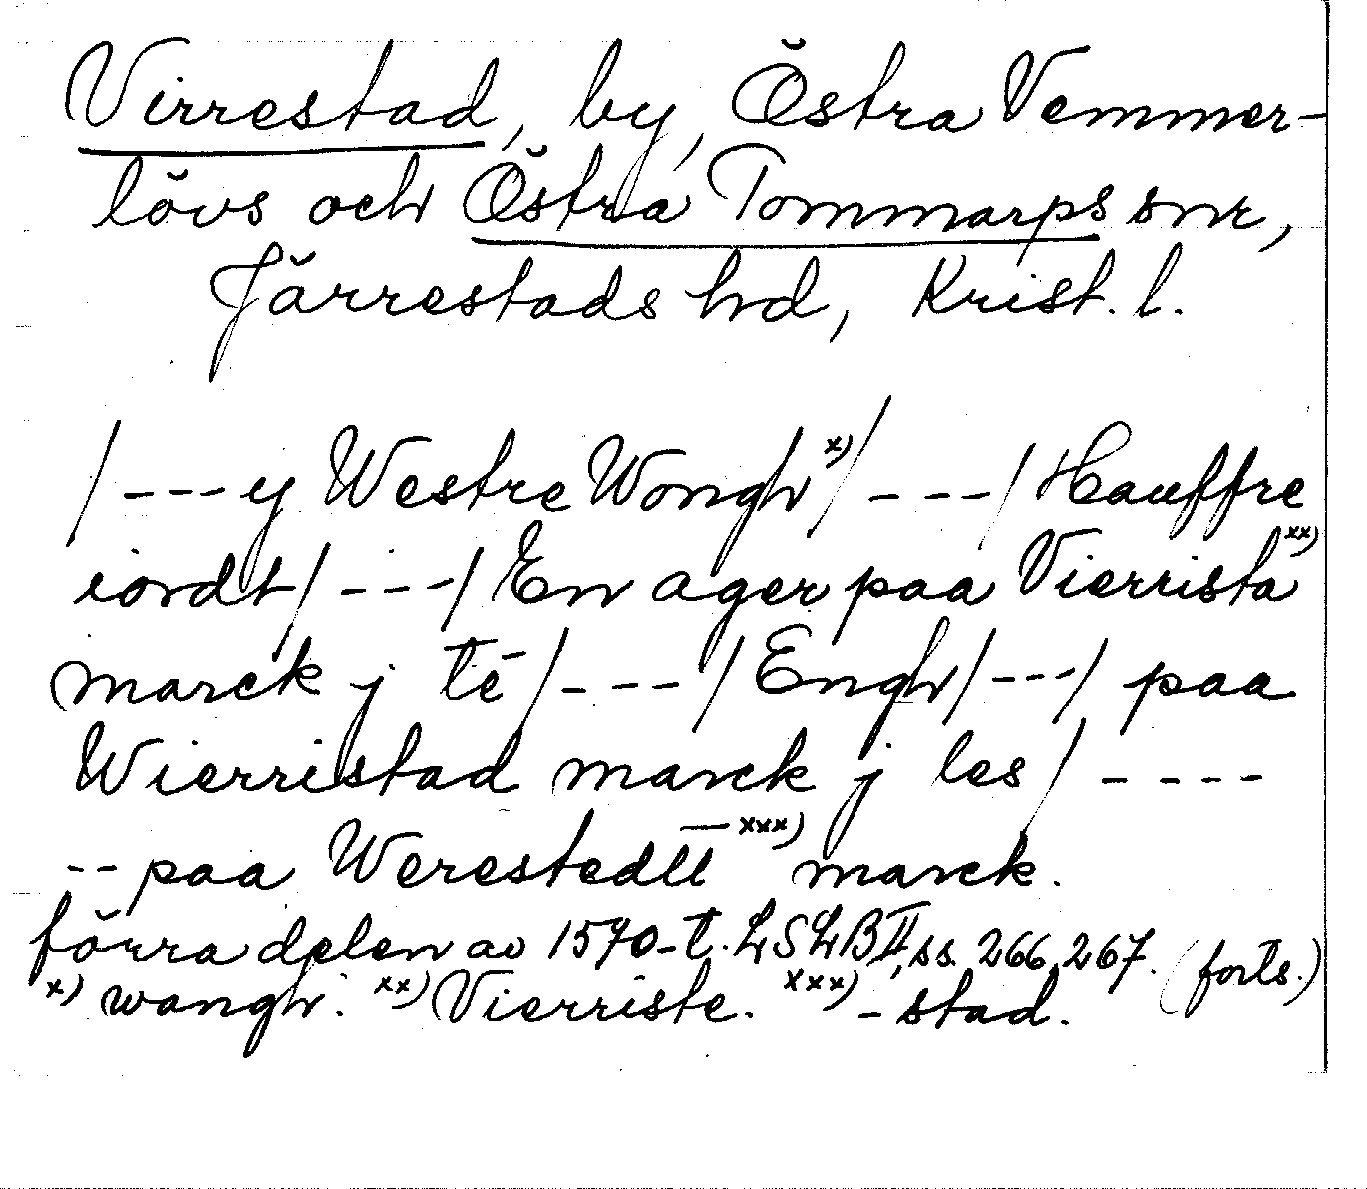 Virrestad, by, Östra Vemmer-
lövs och Östra Tommarps snr,
Järrestads hd, Krist. l.
/---y Westre Wongh x)/---/Hauffre
iordt/---/En ager paa Vierrista xx)
marck j tē/---/Engh/---/ paa
Wierristad marck j les/----
--paa Werestedtt xxx) marck.
förra delen av 1570-t. LSLB II, ss. 266, 267. (forts.)
x) wangh. xx) Vierriste. xxx) -stad.